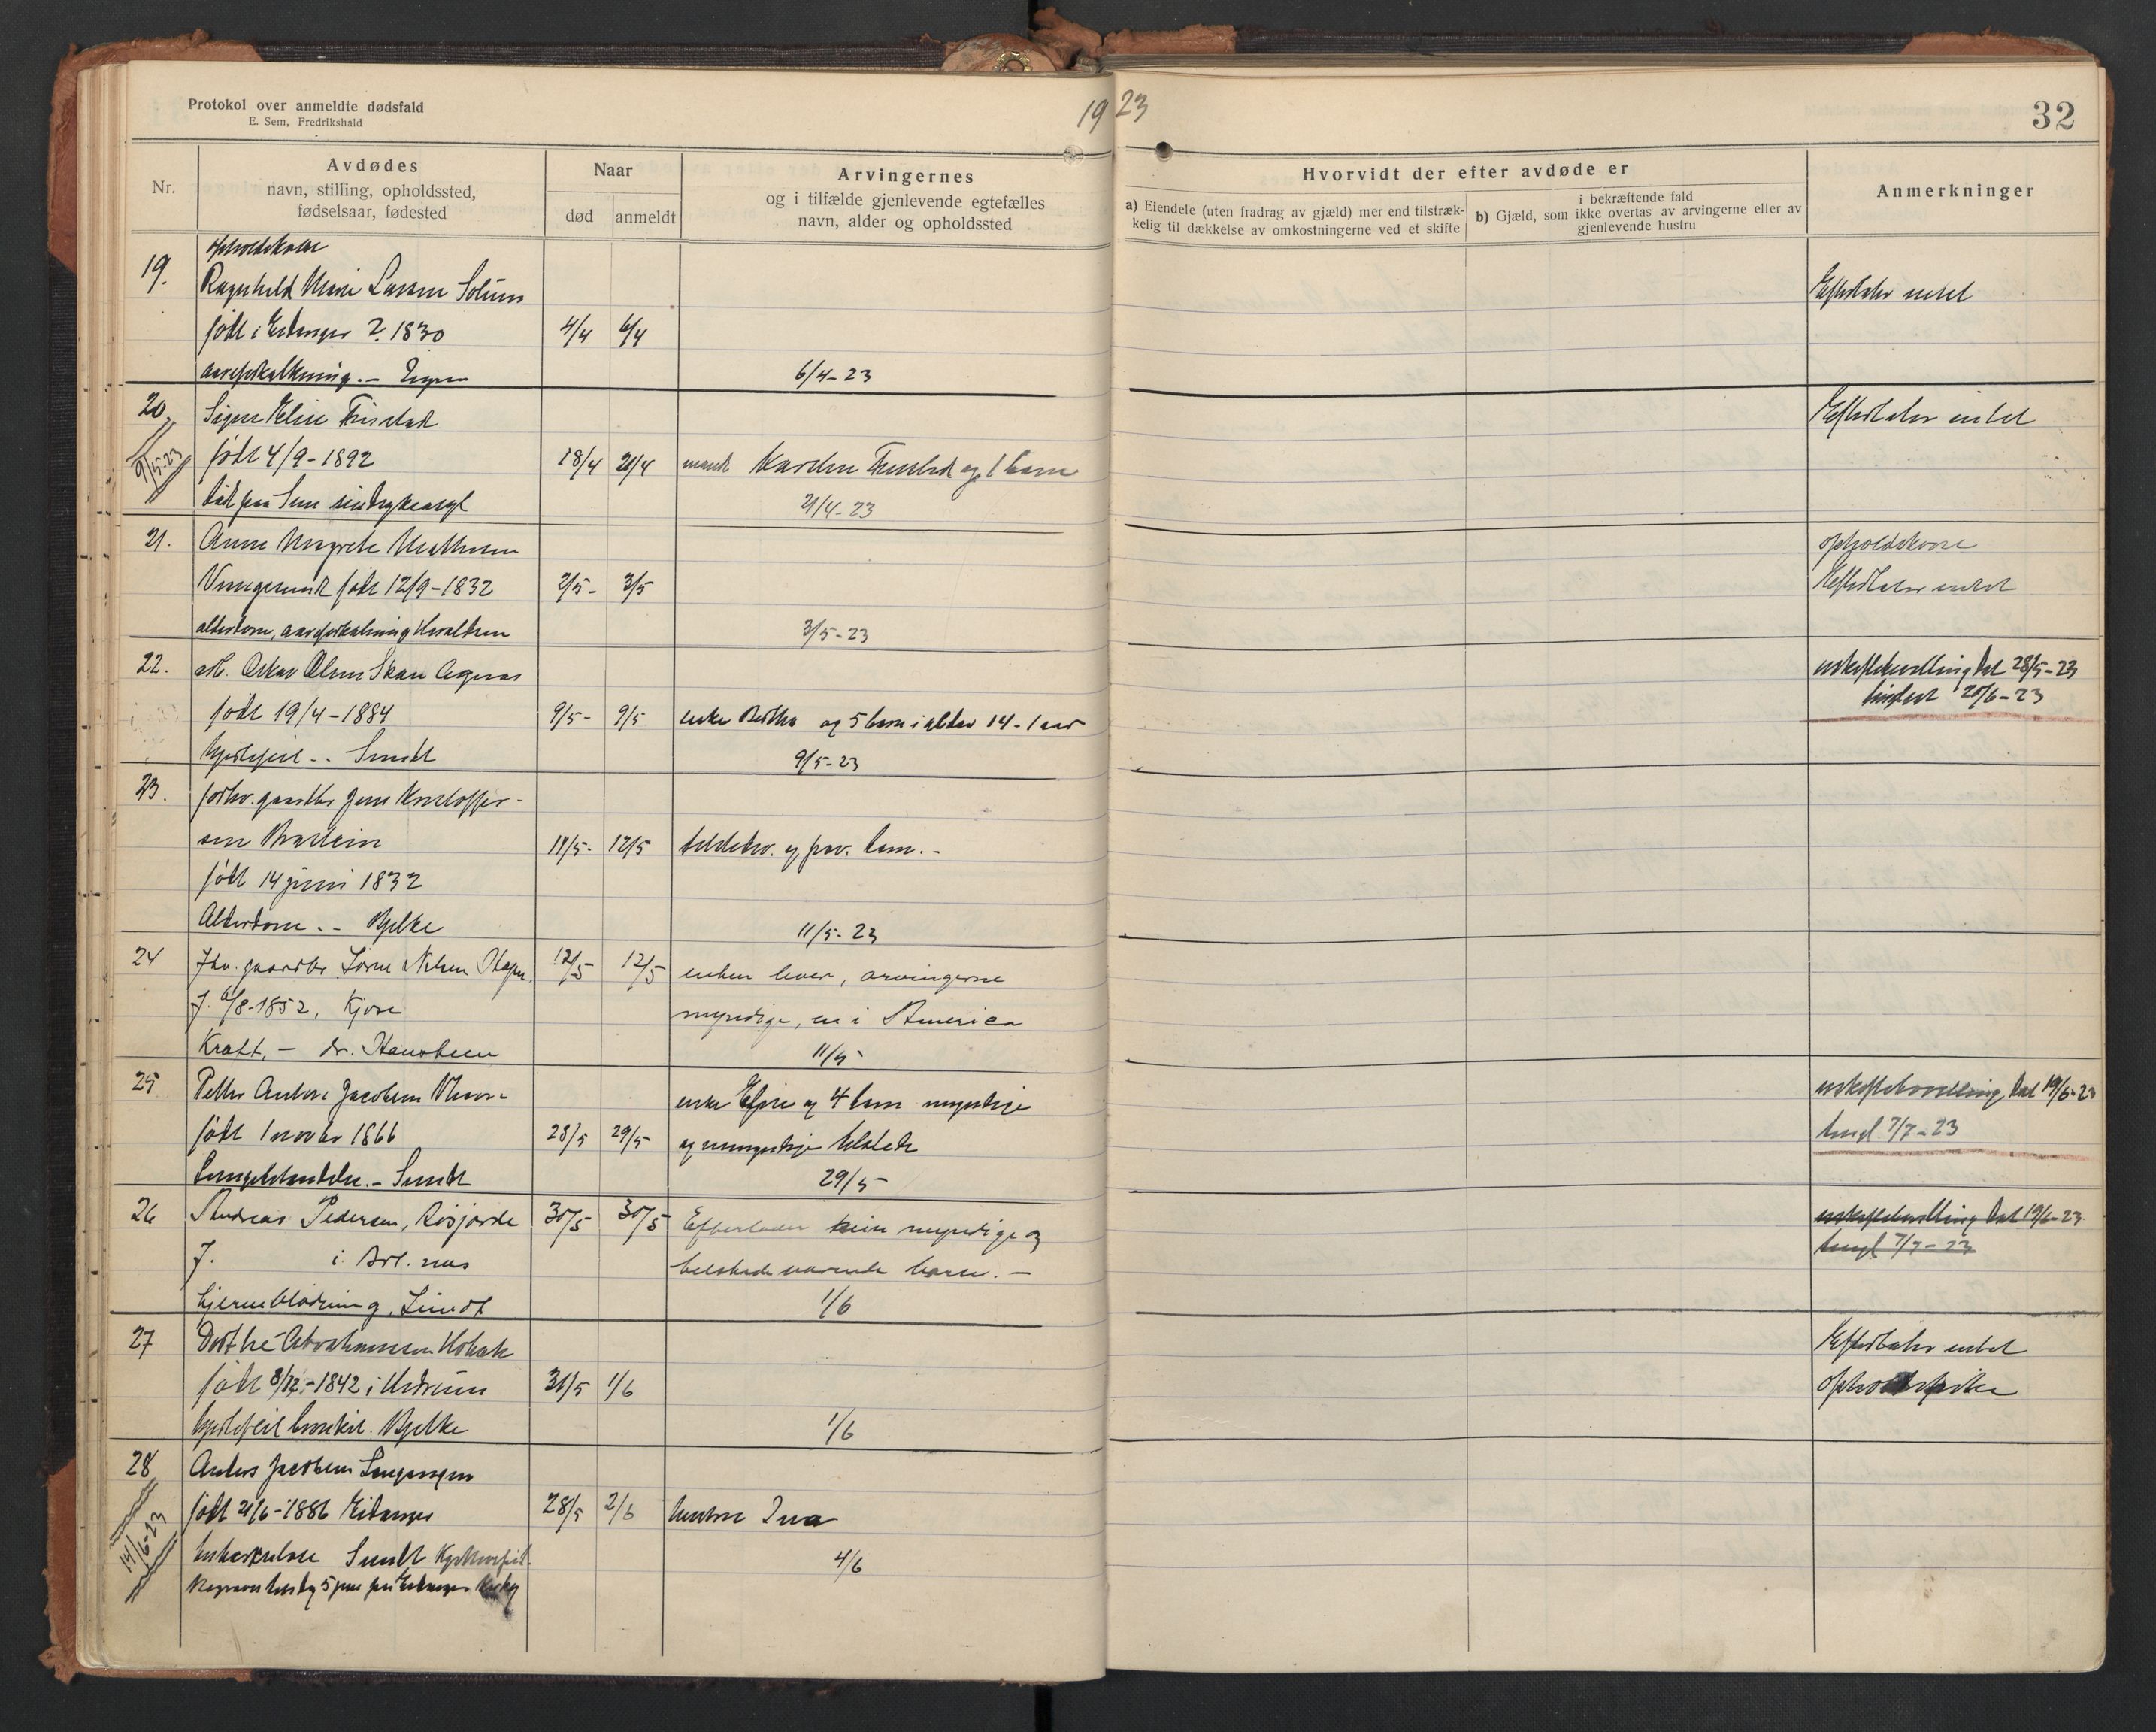 Protokol over anmeldte dødsfald
E. Sem, Fredrikshald
1923
32
Nr.
Avdødes
navn, stilling, opholdssted,
fødselsaar, fødested
Naar
død
anmeldt
Arvingernes
og i tilfælde gjenlevende egtefælles
navn, alder og opholdssted
Hvorvidt der efter avdøde er
a) Eiendele (uten fradrag av gjæld) mer end tilstræk-
kelig til dækkelse av omkostningerne ved et skifte
i bekræftende fald
b) Gjæld, som ikke overtas av arvingerne eller av
gjenlevende hustru
Anmerkninger
opholdskone
19. Ragnhild Marie Larsen Solum
Efterlater intet
født i Eidanger ? 1830 4/4 6/4
aareforkalkning.-
6/4-23
20, Signe Elise
Efterlater intet
9/5-23
født 4/9-1892 18/4 21/4 mand og 1 barn
død paa Sem sindsykeasyl
21/4-23
21. Anne Margrete Mathisen
opholdskone
født 12/9-1832 2/5- 3/5
Efterlater intet
alderdom, aareforkalkning
3/5-23
22. Oskar Olsen Skau
uskiftebevilling dat 28/5-23
tinglæst 20/6-23
født 19/4-1884 9/5- 9/5 enke Bertha og 5 barn i alder 14-1 aar
hjertefeil .. Sundt
9/5-23
23. forhv. gaardbr Jens Kristoffer-
sen 11/5- 12/5 tilstedev. og barn.-
født 14 juni 1832
Alderdom .- Bjelke
11/5-23
24 Fhv. gaardbr. Søren Nilsen 12/5 12/5 enken lever, arvingerne
f. /8-1852, Kjose
myndige, en i America
Kræft, - dr.
11/5-
25 Petter Anton Jacobsen
enke og 4 barn myndige
uskiftebevilling dat 19/6-23
født 1 novbr 1866 28/5 29/5 og umyndige tilstede
tingl. 7/7-23
Lungebetændelse.- Sundt
29/5-
26 Andreas Pedersen, 30/5 30/5 Efterlader kun myndige og
uskiftebevilling dat 19/6-23
f. i Brl.nes
tilstedeværende barn.-
tingl 7/7-23
hjerneblødning, Sundt
1/6
27 Dorthe Abrahamsen
Efterlater intet
født 8/12-1842 i Hedrum 31/5 1/6
hjertefeil Bjelke
1/6
28 Anders Jacobsen Langangen
14/6-23
født 21/6-1886 Eidanger 28/5 2/6 hustru Ina
tuberkulose Sundt
4/6